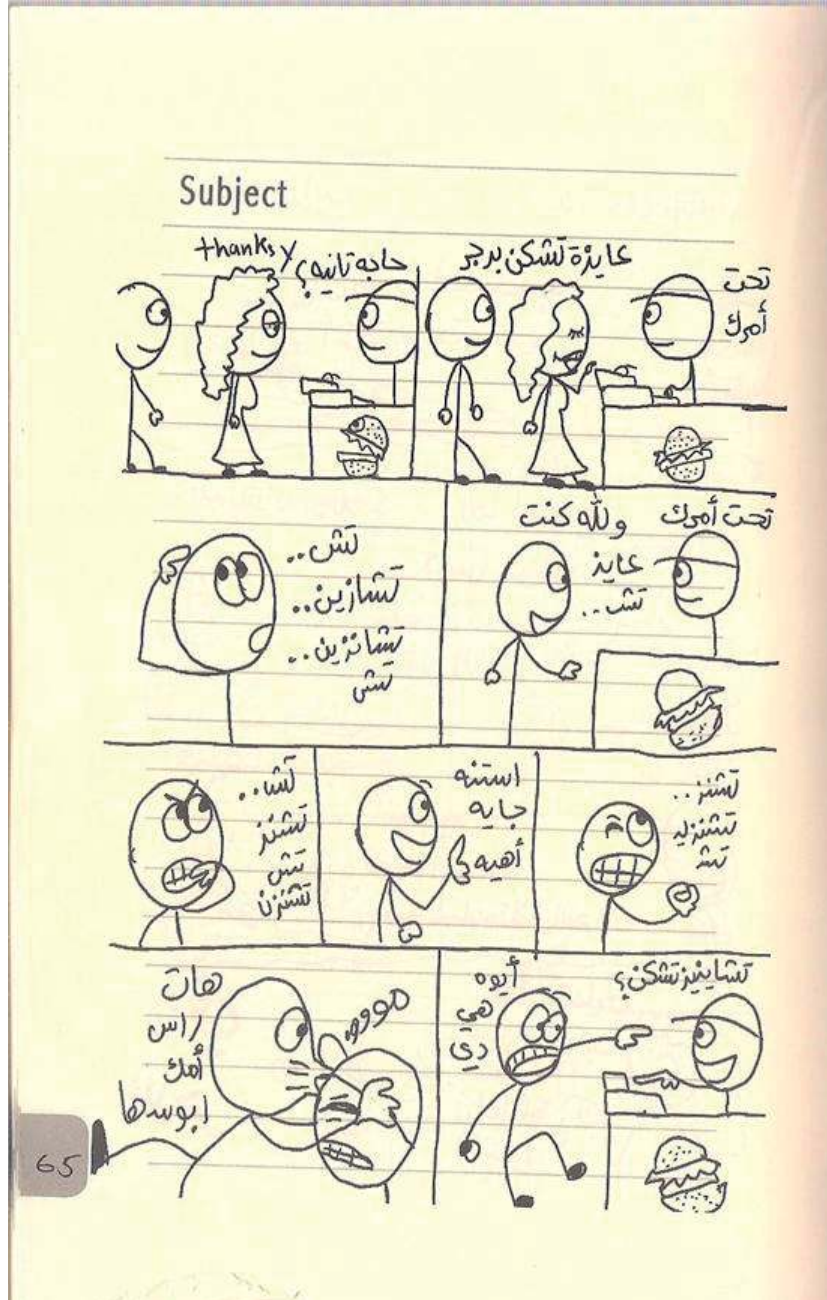 Subject
تحت
أمرك
عايزة تشكن برجر
حاجه تانيه؟
thanksy
تحت أمرك
ولله كنت
عايز
تش..
تش..
تشازين..
تشانزين..
تش
تشنز..
تشنزيد
تش
استنه
جايه
أهيه
تشا..
تشنز
تش
تشنزنا
تشاينيز تشكن؟
أيوه
هي
دي
مووه
هات
راس
أمك
ابوسها
65